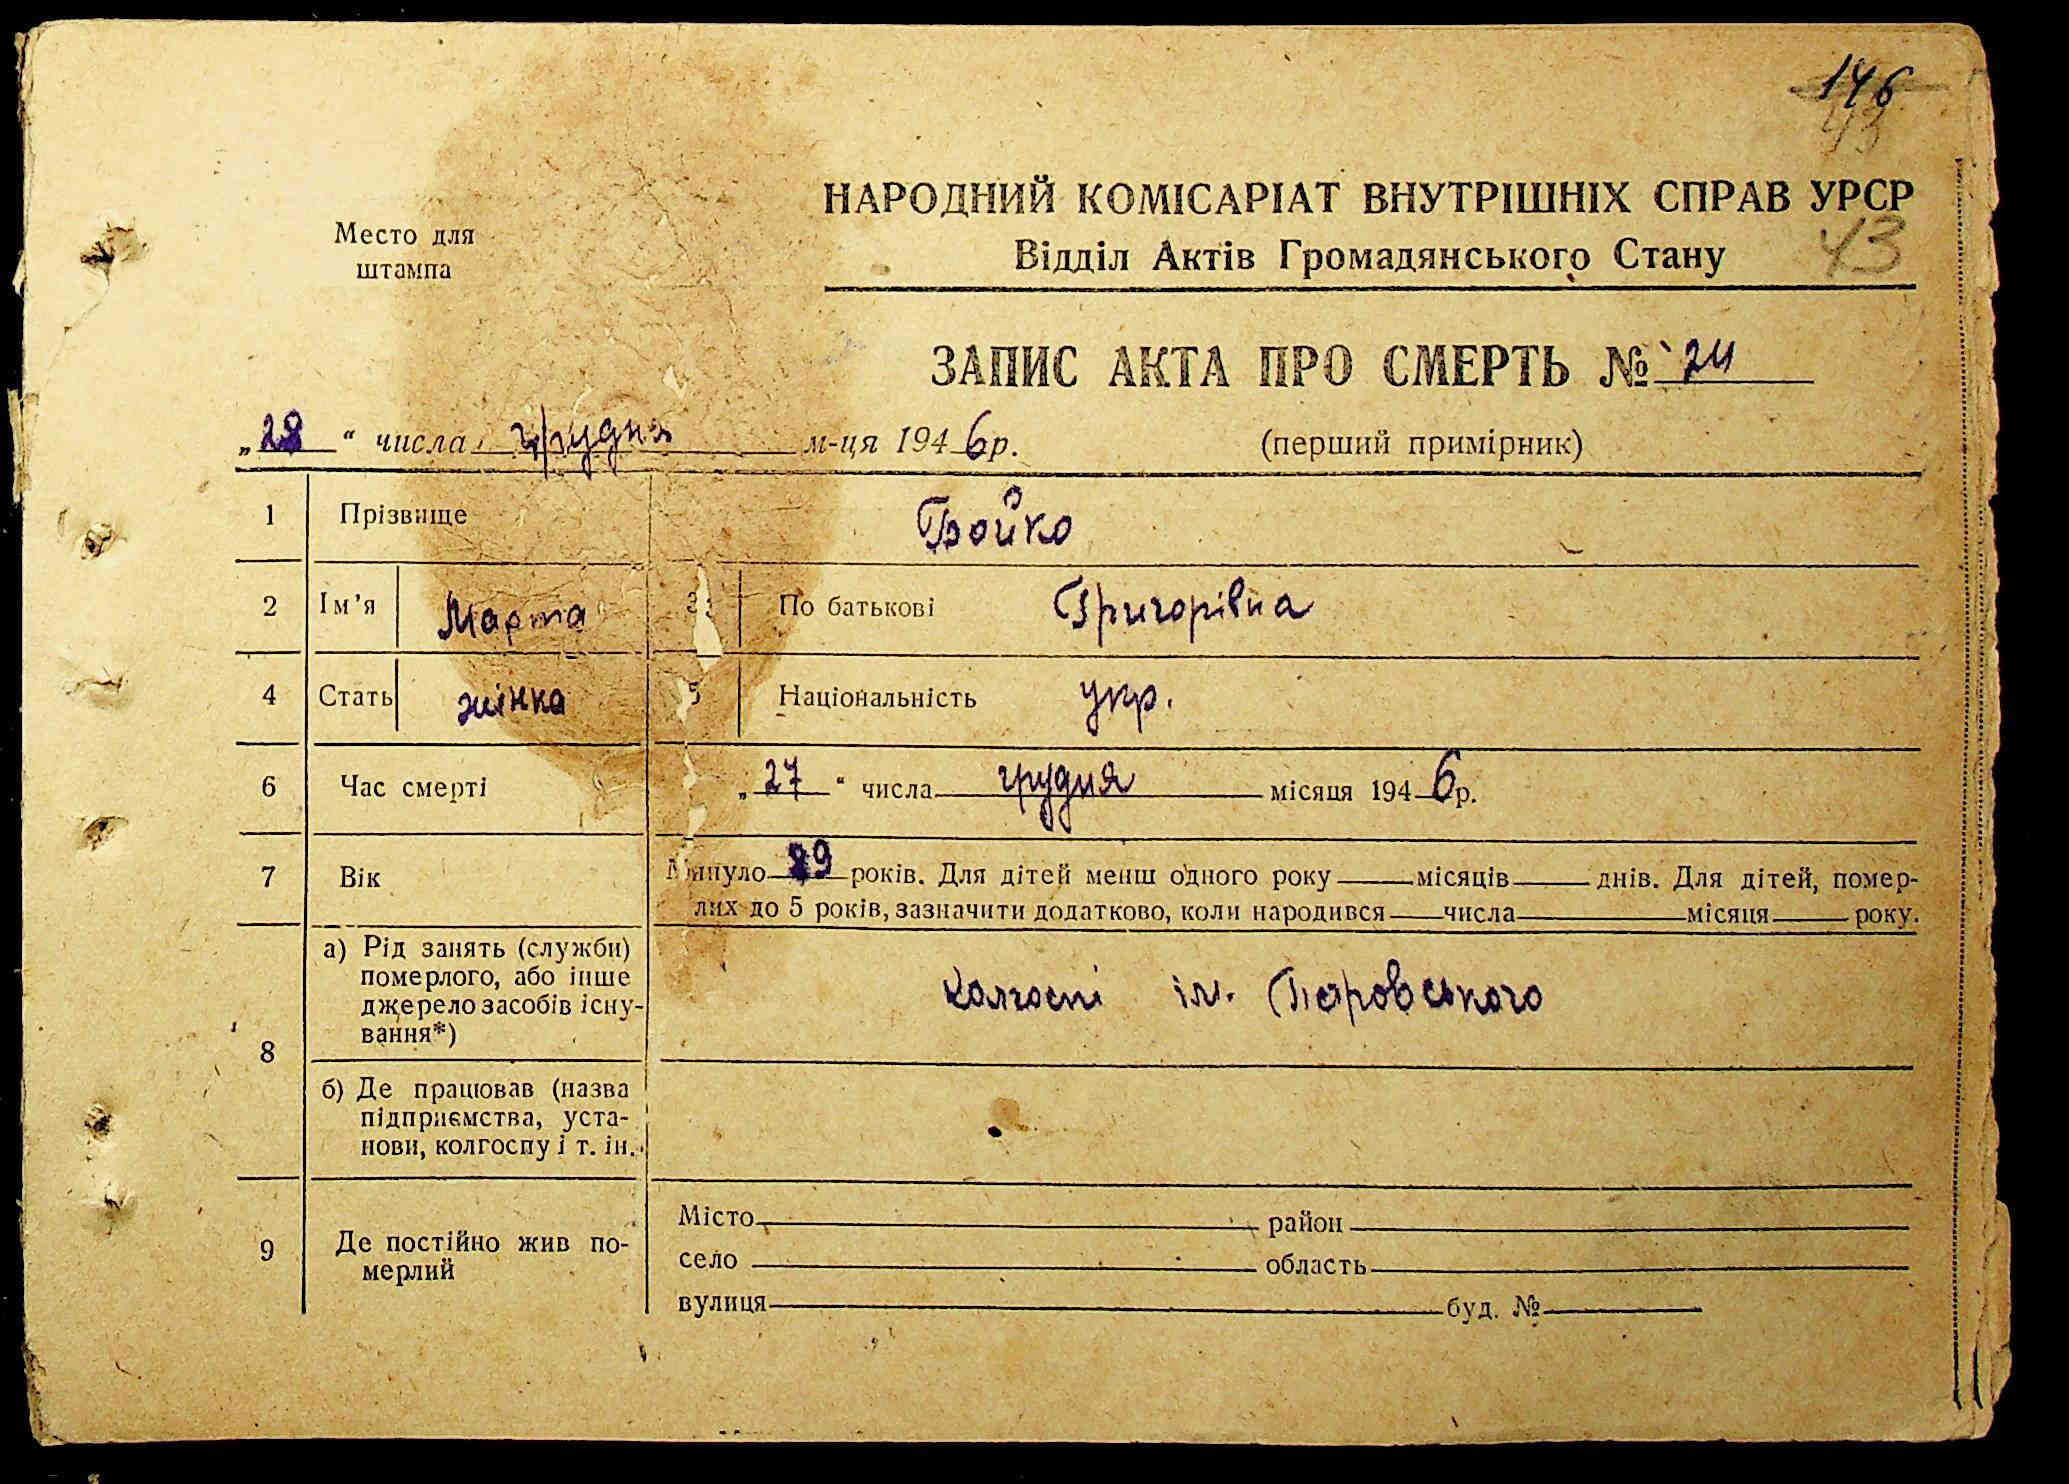 146
43
НАРОДНИЙ КОМІСАРІАТ ВНУТРІШНІХ СПРАВ УРСР
Место для
штампа
Відділ Актів Громадянського Стану
43
ЗАПИС АКТА ПРО СМЕРТЬ № 24
„28“ числа грудня м-ця 1946р.
(перший примірник)
1 Прізвище Бойко
2 Ім’я Марта 3 По батькові Григорівна
4 Стать жінка 5 Національність укр.
6 Час смерті „27“ числа грудня місяця 1946р.
7 Вік Минуло 89 років. Для дітей менш одного року місяців днів. Для дітей, помер-
лих до 5 років, зазначити додатково, коли народився числа місяця року.
8
а) Рід занять (служби)
померлого, або інше
джерело засобів існу-
вання*)
колгоспі ім.
б) Де працював (назва
підприємства, уста-
нови, колгоспу і т. ін.
9 Де постійно жив по-
мерлий
Місто район
село область
вулиця буд. №